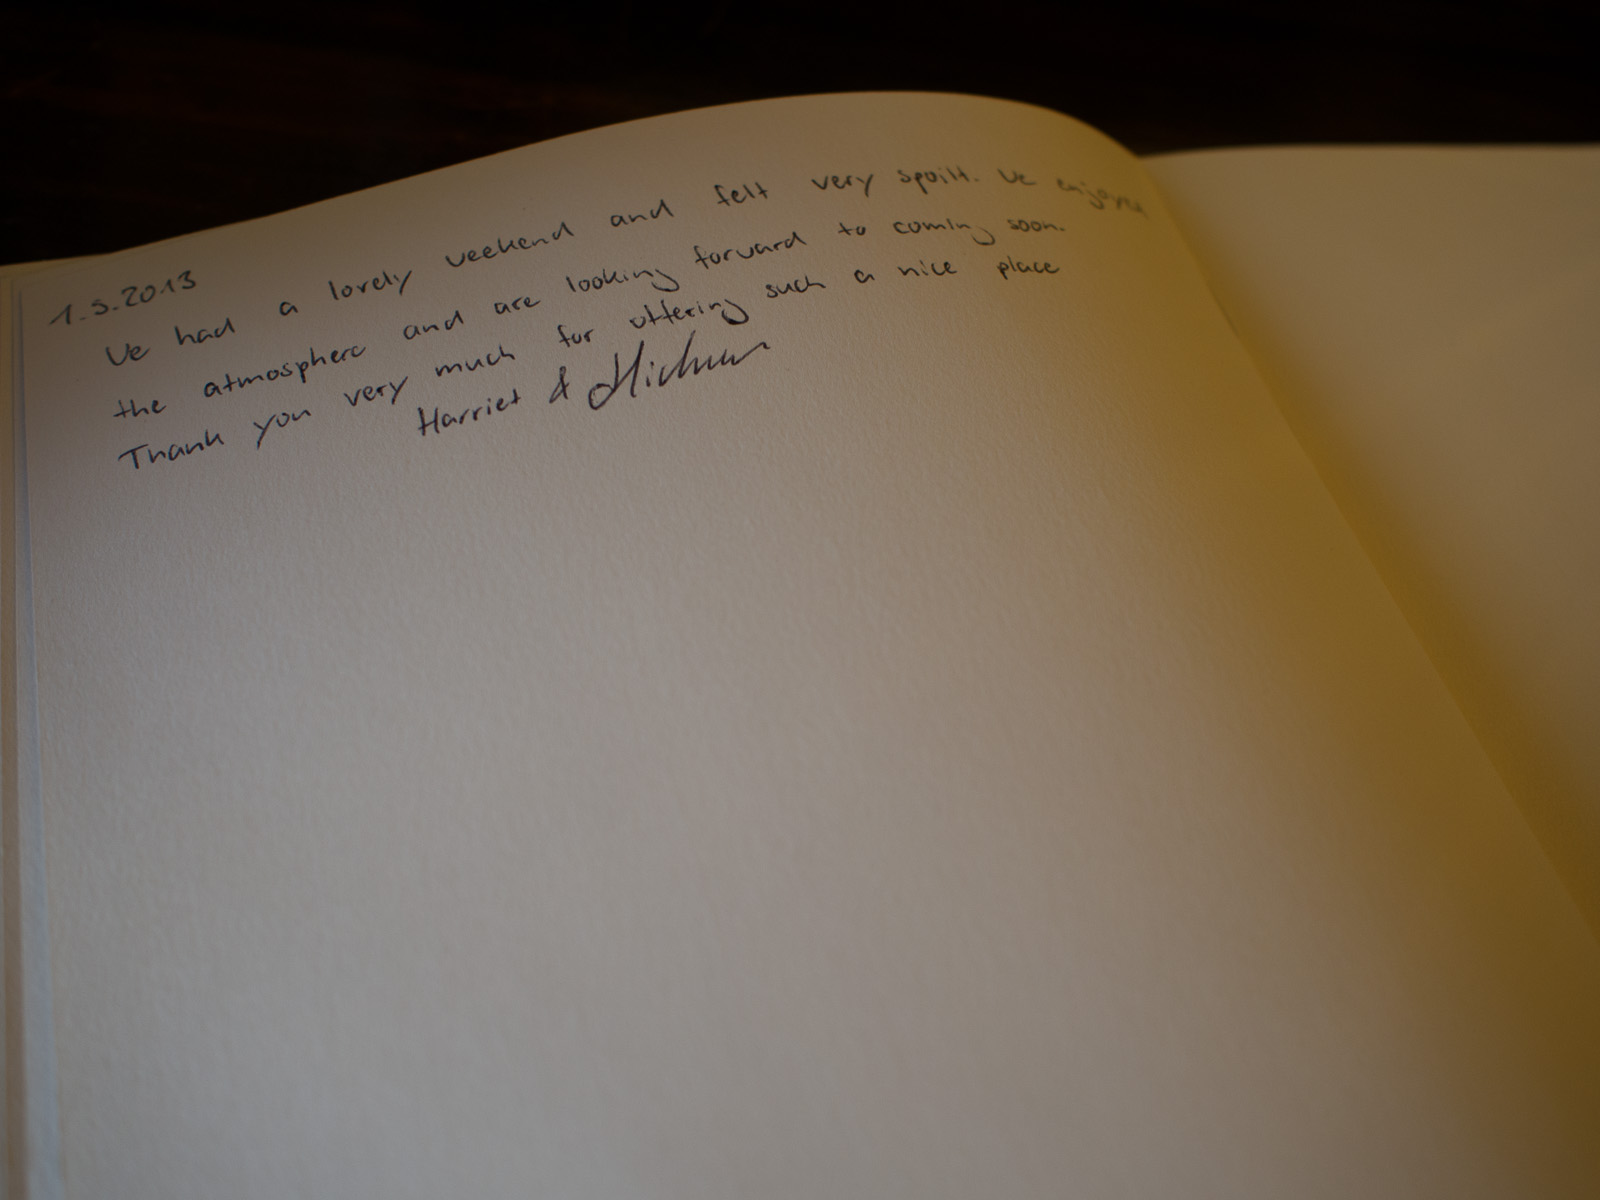 1.3.2013
We had a lovely weekend and felt very spoilt. We enjoyed
the atmosphere and are looking forward to coming soon.
Thank you very much for offering such a nice place
Harriet &